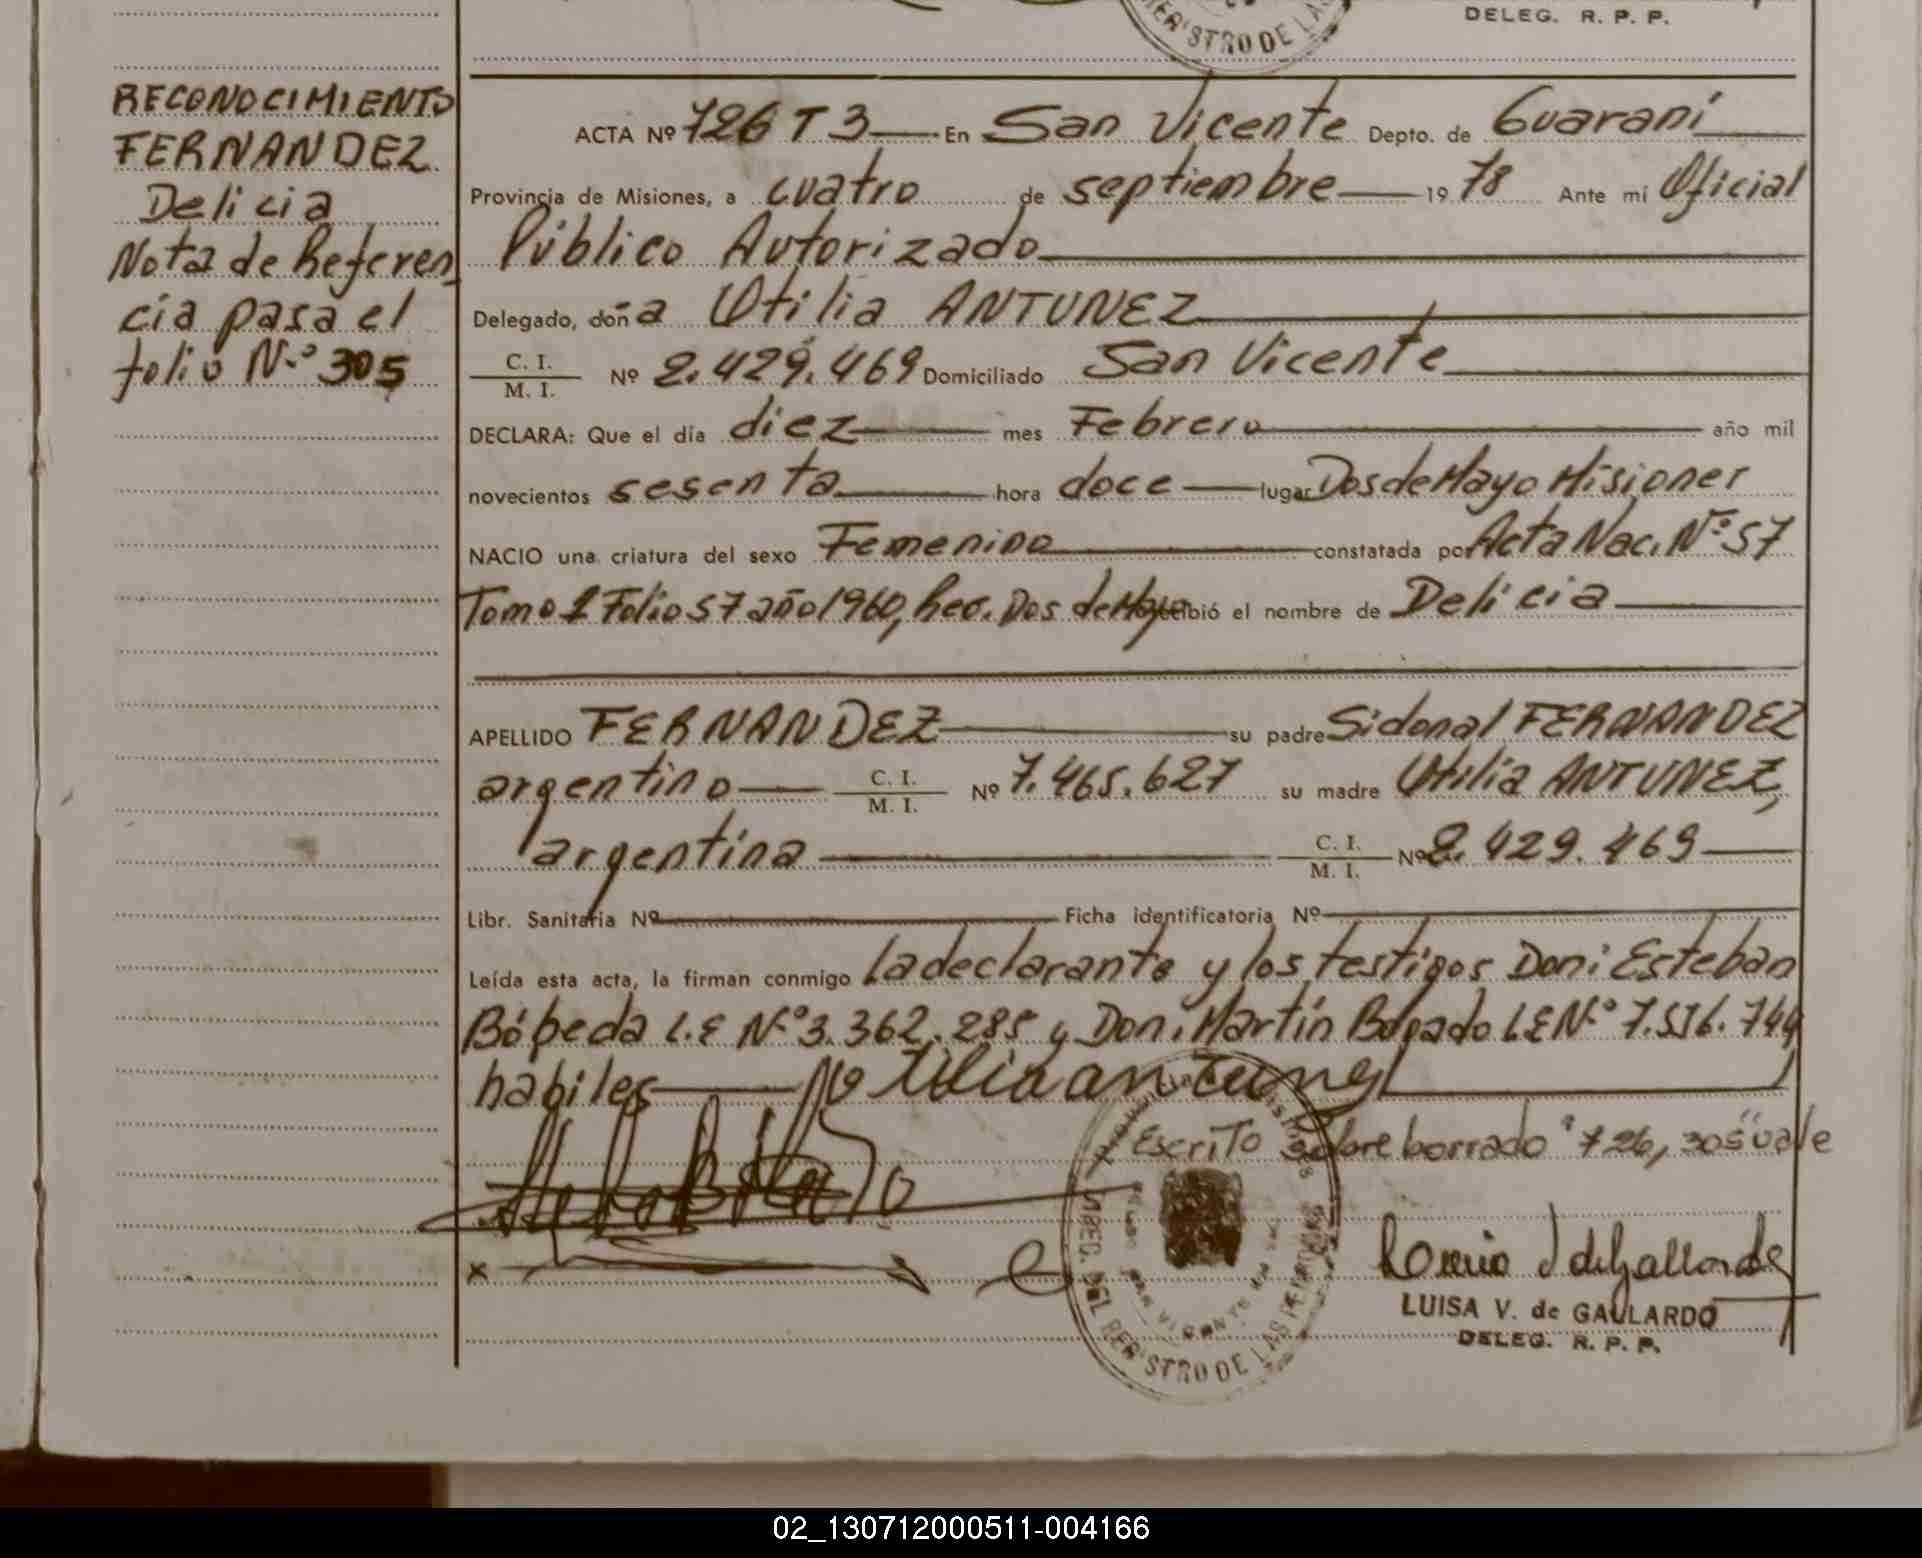 DELEG. R. P. P.
REGISTRO DE LAS
RECONOCIMIENTO
FERNANDEZ
Delicia
Nota de Referen
cia pasa el
folio N.º 305
ACTA Nº 726 T 3 En San Vicente Depto. de Guaraní
Provincia de Misiones, a cuatro de septiembre 19 78 Ante mí Oficial
Público Autorizado
Delegado, doña Utilia ANTUNEZ
C. I.
M. I. Nº 2.429.469 Domiciliado San Vicente
DECLARA: Que el día diez mes Febrero año mil
novecientos sesenta hora doce lugar Dos de Mayo Misiones
NACIO una criatura del sexo Femenino constatada por Acta Nac. Nº 57
Tomo 1 Folio 57 año 1960, Rec. Dos de Mayo recibió el nombre de Delicia
APELLIDO FERNANDEZ su padre Sidonal FERNANDEZ
argentino C. I.
M. I. Nº 7.465.627 su madre Utilia ANTUNEZ,
argentina C. I.
M. I. Nº 2.429.469
Libr. Sanitaria Nº Ficha identificatoria Nº
Leída esta acta, la firman conmigo la declarante y los testigos Don: Esteban
Bóbeda L.E N.º 3.362.285 y Don: Martín Bogado L E N.º 7.516.744
habiles Utilia antunez
Escrito sobre borrado "726, 305" vale
SUBEC. DEL REGISTRO DE LAS PERSONAS
SAN VICENTE
LUISA V. de GALLARDO
DELEG. R. P. P.
02_130712000511-004166